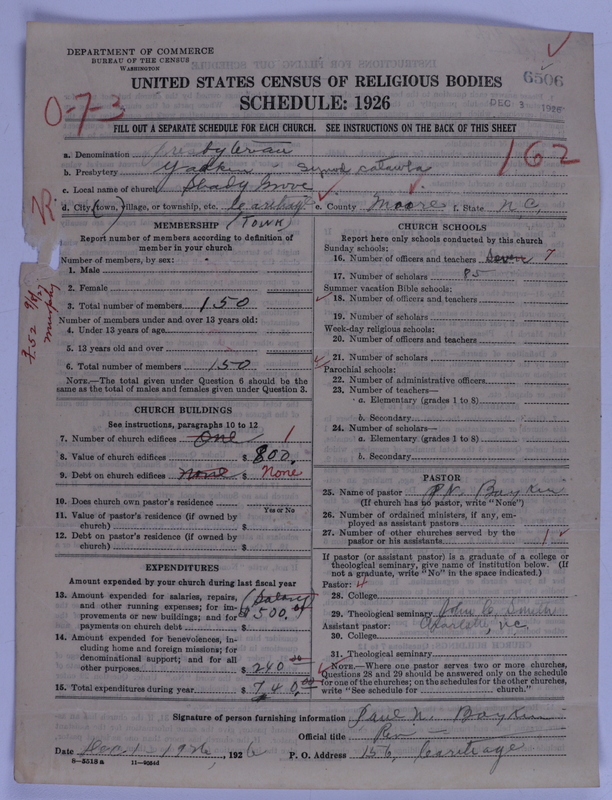 DEPARTMENT OF COMMERCE
BUREAU OF THE CENSUS
WASHINGTON
UNITED STATES CENSUS OF RELIGIOUS BODIES
SCHEDULE: 1926
6506
DEC 3 1926
0-7-3
162
FILL OUT A SEPARATE SCHEDULE FOR EACH CHURCH. SEE INSTRUCTIONS ON THE BACK OF THIS SHEET
a. Denomination Presbyterian
b. Presbytery Yadkin - Synod Catawba
c. Local name of church Shady Grove
d. City, (town,) village, or township, etc. Carthage e. County Moore f. State N.C.
(Town)
MEMBERSHIP
Report number of members according to definition of member in your church
Number of members, by sex:
1. Male
2. Female
3. Total number of members 150
Number of members under and over 13 years old:
4. Under 13 years of age
5. 13 years old and over
6. Total number of members 150
NOTE.—The total given under Question 6 should be the same as the total of males and females given under Question 3.
7-52 9/15/27 Murphy
CHURCH BUILDINGS
See instructions, paragraphs 10 to 12
7. Number of church edifices One 1
8. Value of church edifices $ 800.
9. Debt on church edifices None $ None
10. Does church own pastor's residence
Yes or No
11. Value of pastor's residence (if owned by church) $
12. Debt on pastor's residence (if owned by church) $
EXPENDITURES
Amount expended by your church during last fiscal year
13. Amount expended for salaries, repairs, and other running expenses; for improvements or new buildings; and for payments on church debt $ (Salary) $500.00
14. Amount expended for benevolences, including home and foreign missions; for denominational support; and for all other purposes $ 240 00
15. Total expenditures during year $ 740.00
CHURCH SCHOOLS
Report here only schools conducted by this church
Sunday schools:
16. Number of officers and teachers Seven 7
17. Number of scholars 85
Summer vacation Bible schools:
18. Number of officers and teachers
19. Number of scholars
Week-day religious schools:
20. Number of officers and teachers
21. Number of scholars
Parochial schools:
22. Number of administrative officers
23. Number of teachers—
a. Elementary (grades 1 to 8)
b. Secondary
24. Number of scholars—
a. Elementary (grades 1 to 8)
b. Secondary
PASTOR
25. Name of pastor P.N. Boykin
(If church has no pastor, write "None")
26. Number of ordained ministers, if any, employed as assistant pastors
27. Number of other churches served by the pastor or his assistants 1
If pastor (or assistant pastor) is a graduate of a college or theological seminary, give name of institution below. (If not a graduate, write "No" in the space indicated.)
Pastor:
28. College
29. Theological seminary John C. Smith
Assistant pastor: Charlotte, N.C.
30. College
31. Theological seminary
NOTE.—Where one pastor serves two or more churches, Questions 28 and 29 should be answered only on the schedule for one of the churches; on the schedules for the other churches, write "See schedule for church."
Signature of person furnishing information Paul N. Boykin
Official title Rev
Date Dec 1 - 1926, 1926 P. O. Address 156, Carthage
8-5518 a 11-4034d